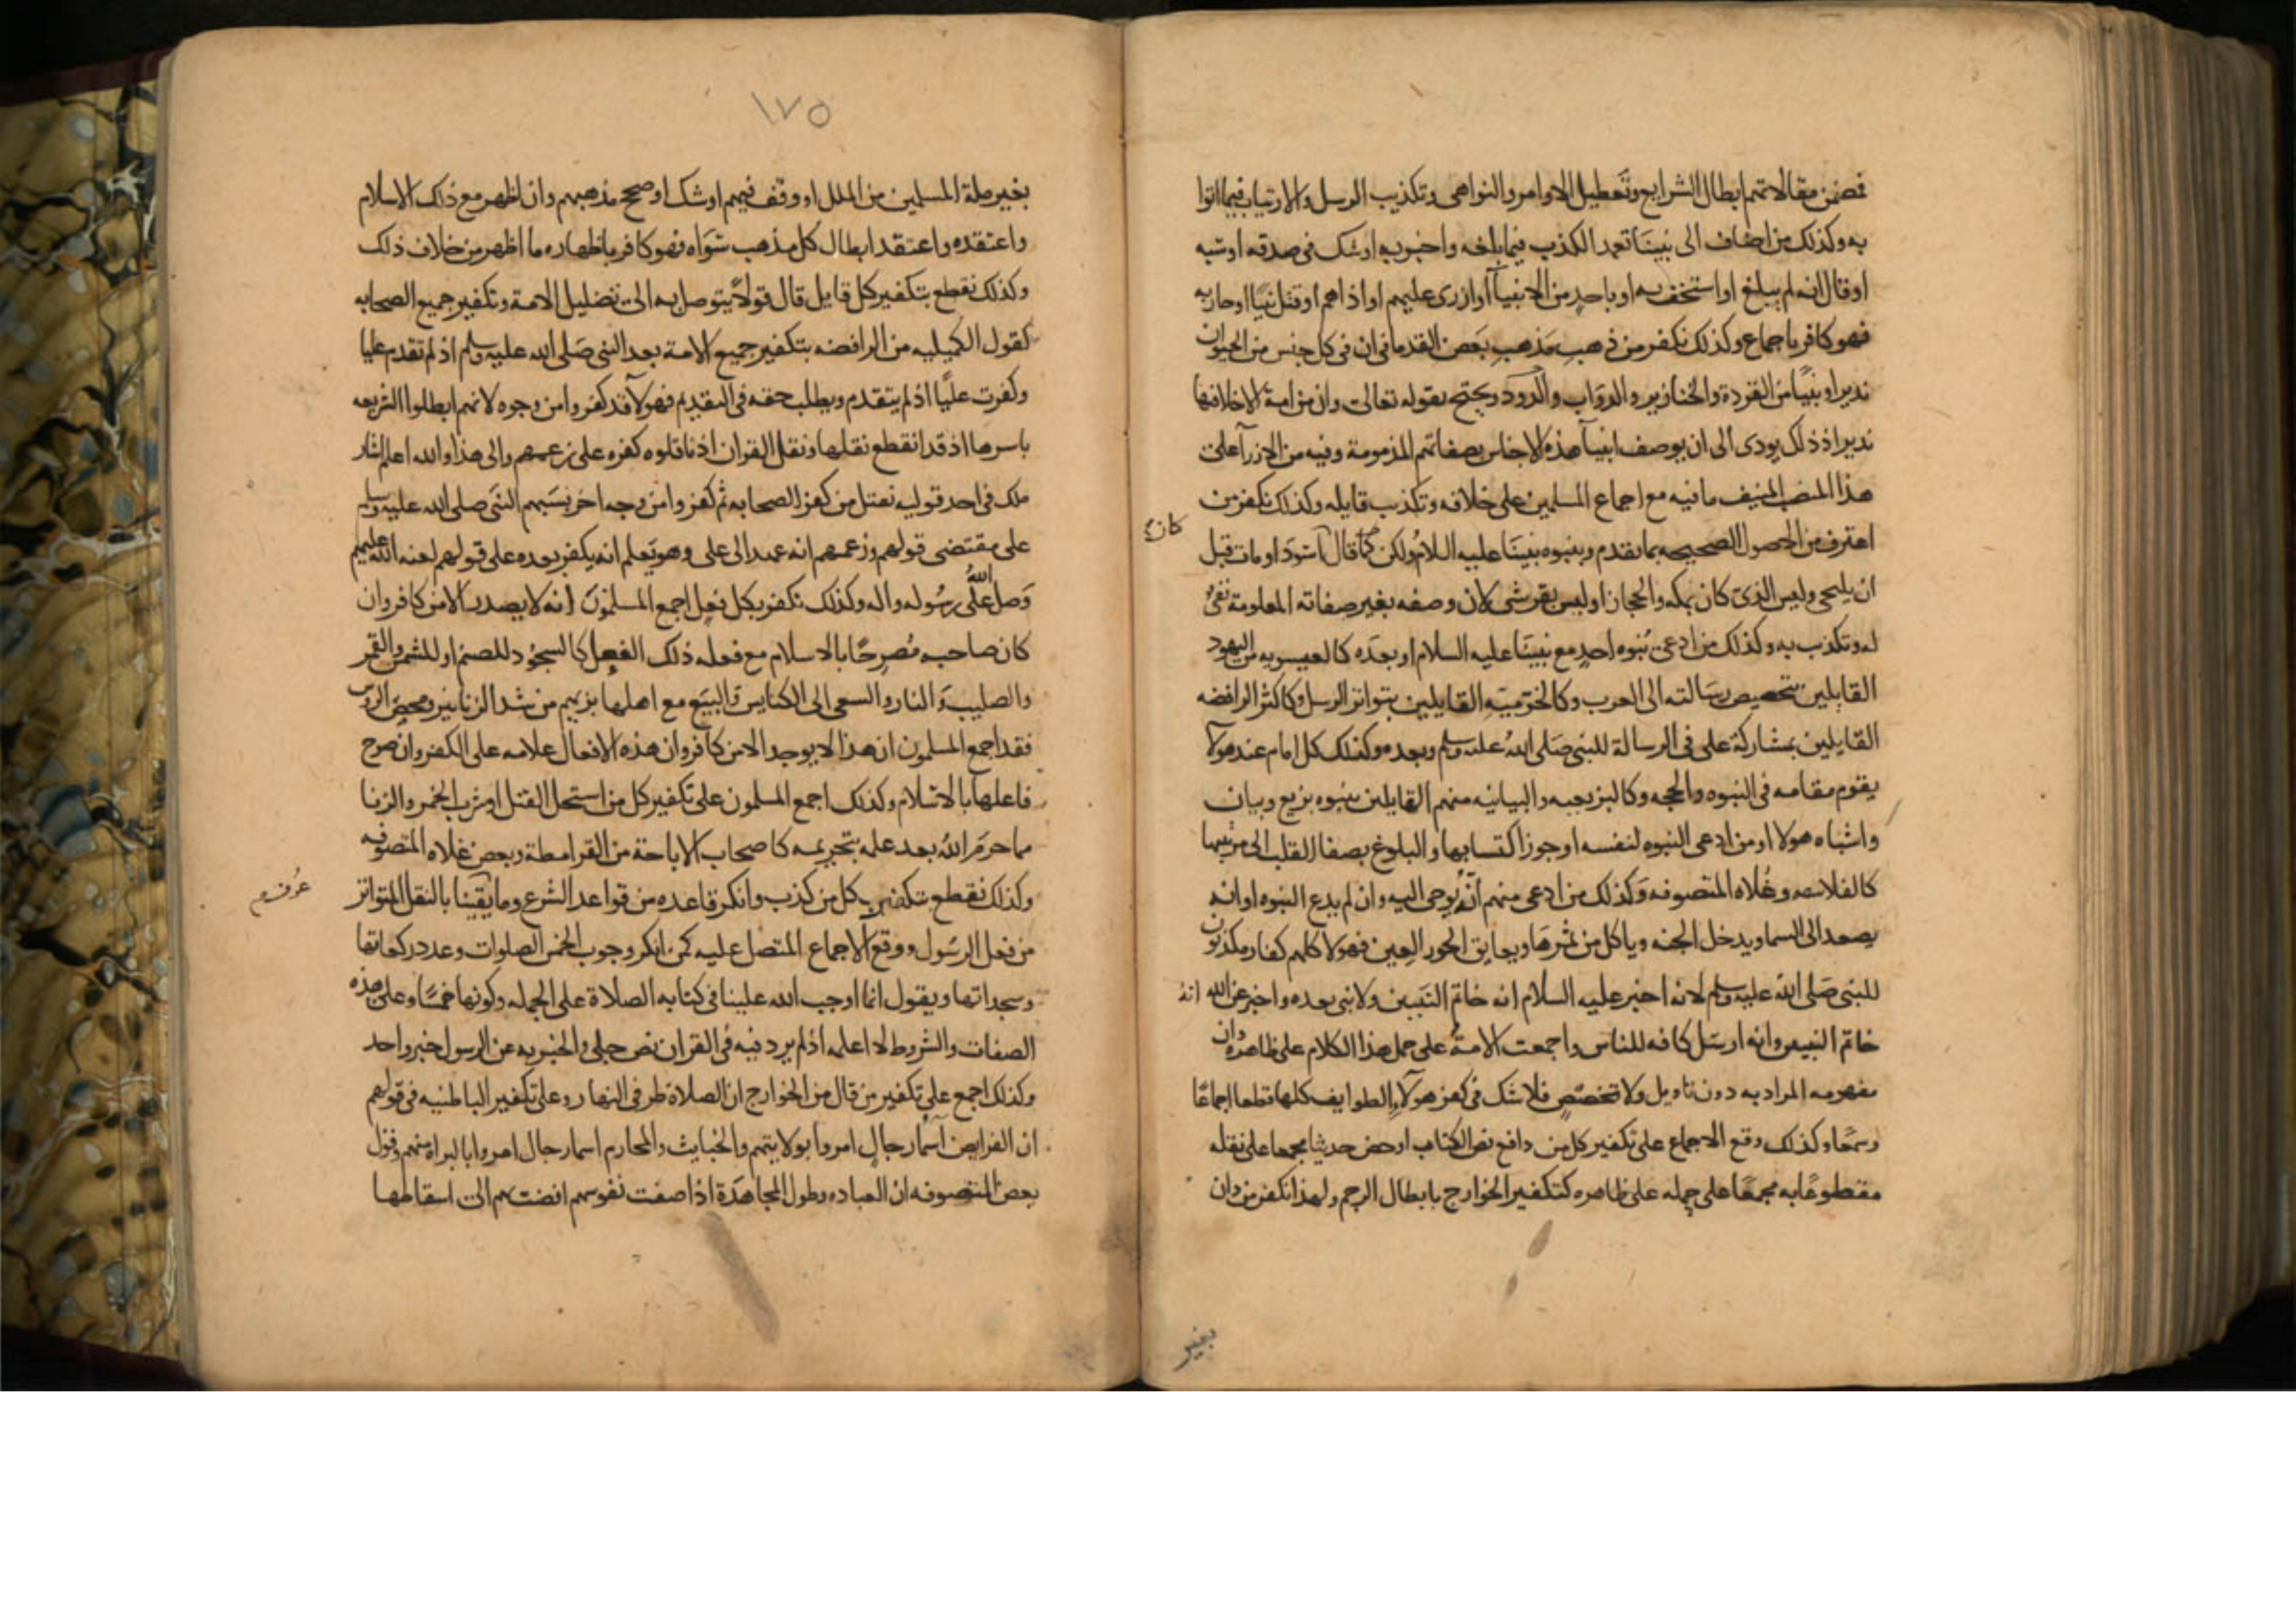 فضمن مقالاتهم ابطال الشرايع وتعطيل الاوامر والنواهى وتكذيب الرسل والارتياب فيما اتوا
به وكذلك من اضاف الى نبينا تعمد الكذب فيما بلغه واخبر به او شك فى صدقه او سبه
او قال انه لم يبلغ او استخف به او باحد من الانبيآ او ازرى عليهم او اذاهم او قتل نبيًا او حاربه
فهو كافر باجماع وكذلك نكفر من ذهب مذهب بعض القدما فى ان فى كل جنس من الحيوان
نذيرا ونبيًا من القردة والخنازير والدواب والدود ويحتج بقوله تعالى وان من امة الا خلا فيها
نذير اذ ذلك يودى الى ان يوصف انبيآ هذه الاجناس بصفاتهم المذمومة وفيه من الازرآ على
هذا المنصب المنيف ما فيه مع اجماع المسلمين على خلافه وتكذيب قايله وكذلك نكفر من
اعترف من الاصول الصحيحه بما تقدم وبنبوه نبينا عليه السلام ولكن قال اسود او مات قبل
كان
ان يلتحى وليس الذى كان بمكه والحجاز او ليس بقرشى لان وصفه بغير صفاته المعلومة نفى
له وتكذيب به وكذلك من ادعى نبوه احد مع نبينا عليه السلام او بعده كالعيسويه من اليهود
القايلين بتخصيص رسالته الى العرب وكالخرميه القايلين بتواتر الرسل وكاكثر الرافضه
القايلين بمشاركة على فى الرسالة للنبى صلى الله عليه وسلم وبعده وكذلك كل امام عند هولآ
يقوم مقامه فى النبوه والحجه وكالبزيعيه والبيانيه منهم القايلين بنبوه بزيع وبيان
واشباه هولا او من ادعى النبوه لنفسه او جوز اكتسابها والبلوغ بصفا القلب الى مرتبتها
كالفلاسفه وغلاه المتصوفه وكذلك من ادعى منهم انه يوحى اليه وان لم يدع النبوه او انه
يصعد الى السما ويدخل الجنه وياكل من ثمرها ويعانق الحور العين فهولا كلهم كفار مكذبون
للنبى صلى الله عليه وسلم لانه اخبر عليه السلام انه خاتم النبيين ولا نبى بعده واخبر عن الله انه
خاتم النبيين وانه ارسل كافه للناس واجمعت الامة على حمل هذا الكلام على ظاهره وان
مفهومه المراد به دون تاويل ولا تخصيص فلا شك فى كفر هولآء الطوايف كلها قطعا اجماعًا
وسمعًا وكذلك وقع الاجماع على تكفير كل من دافع نص الكتاب او خص حديثا مجمعا على نقله
مقطوعًا به مجمعًا على حمله على ظاهره كتكفير الخوارج بابطال الرجم ولهذا نكفر من دان
بغير
١٧٥
بغير ملة المسلمين من الملل او وقف فيهم او شك او صحح مذهبهم وان اظهر مع ذلك الاسلام
واعتقده واعتقد ابطال كل مذهب سواه فهو كافر باظهاره ما اظهر من خلاف ذلك
وكذلك نقطع بتكفير كل قايل قال قولاً يتوصل به الى تضليل الامة وتكفير جميع الصحابه
كقول الكميليه من الرافضه بتكفير جميع الامة بعد النبى صلى الله عليه وسلم اذ لم تقدم عليا
وكفرت عليًا اذ لم يتقدم ويطلب حقه فى التقديم فهولآ قد كفروا من وجوه لانهم ابطلوا الشريعه
باسرها اذ قد انقطع نقلها ونقل القران اذ ناقلوه كفره على زعمهم والى هذا والله اعلم اشار
ملك فى احد قوليه بقتل من كفر الصحابه ثم كفروا من وجه اخر بسبهم النبى صلى الله عليه وسلم
على مقتضى قولهم وزعمهم انه عهد الى على وهو يعلم انه يكفر بعده على قولهم لعنه الله عليهم
وصلى الله على رسوله واله وكذلك نكفر بكل فعل اجمع المسلمون انه لا يصدر الا من كافر وان
كان صاحبه مصرحًا بالاسلام مع فعله ذلك الفعل كالسجود للصنم او للشمس والقمر
والصليب والنار والسعى الى الكنايس والبيع مع اهلها بزيهم من شد الزنانير وفحص الروس
فقد اجمع المسلمون ان هذا لا يوجد الا من كافر وان هذه الافعال علامه على الكفر وان صرح
فاعلها بالاسلام وكذلك اجمع المسلمون على تكفير كل من استحل القتل او شرب الخمر والزنا
مما حرم الله بعد علمه بتحريمه كاصحاب الاباحة من القرامطة وبعض غلاه المتصوفه
وكذلك نقطع بتكفير كل من كذب وانكر قاعده من قواعد الشرع وما يقينا بالنقل المتواتر
عرف
من فعل الرسول ووقع الاجماع المتصل عليه كمن انكر وجوب الخمس الصلوات وعدد ركعاتها
وسجداتها ويقول انما اوجب الله علينا فى كتابه الصلاة على الجمله وكونها خمسًا وعلى هذه
الصفات والشروط لا اعلمه اذ لم يرد فيه فى القران نص جلى والخبر به عن الرسول خبر واحد
وكذلك اجمع على تكفير من قال من الخوارج ان الصلاة طرفى النهار وعلى تكفير الباطنيه فى قولهم
ان الفرايض اسما رجال امروا بولايتهم والخبايث والمحارم اسما رجال امروا بالبراه منهم وقول
بعض المتصوفه ان العباده وطول المجاهدة اذا صفت نفوسهم افضت بهم الى اسقاطها